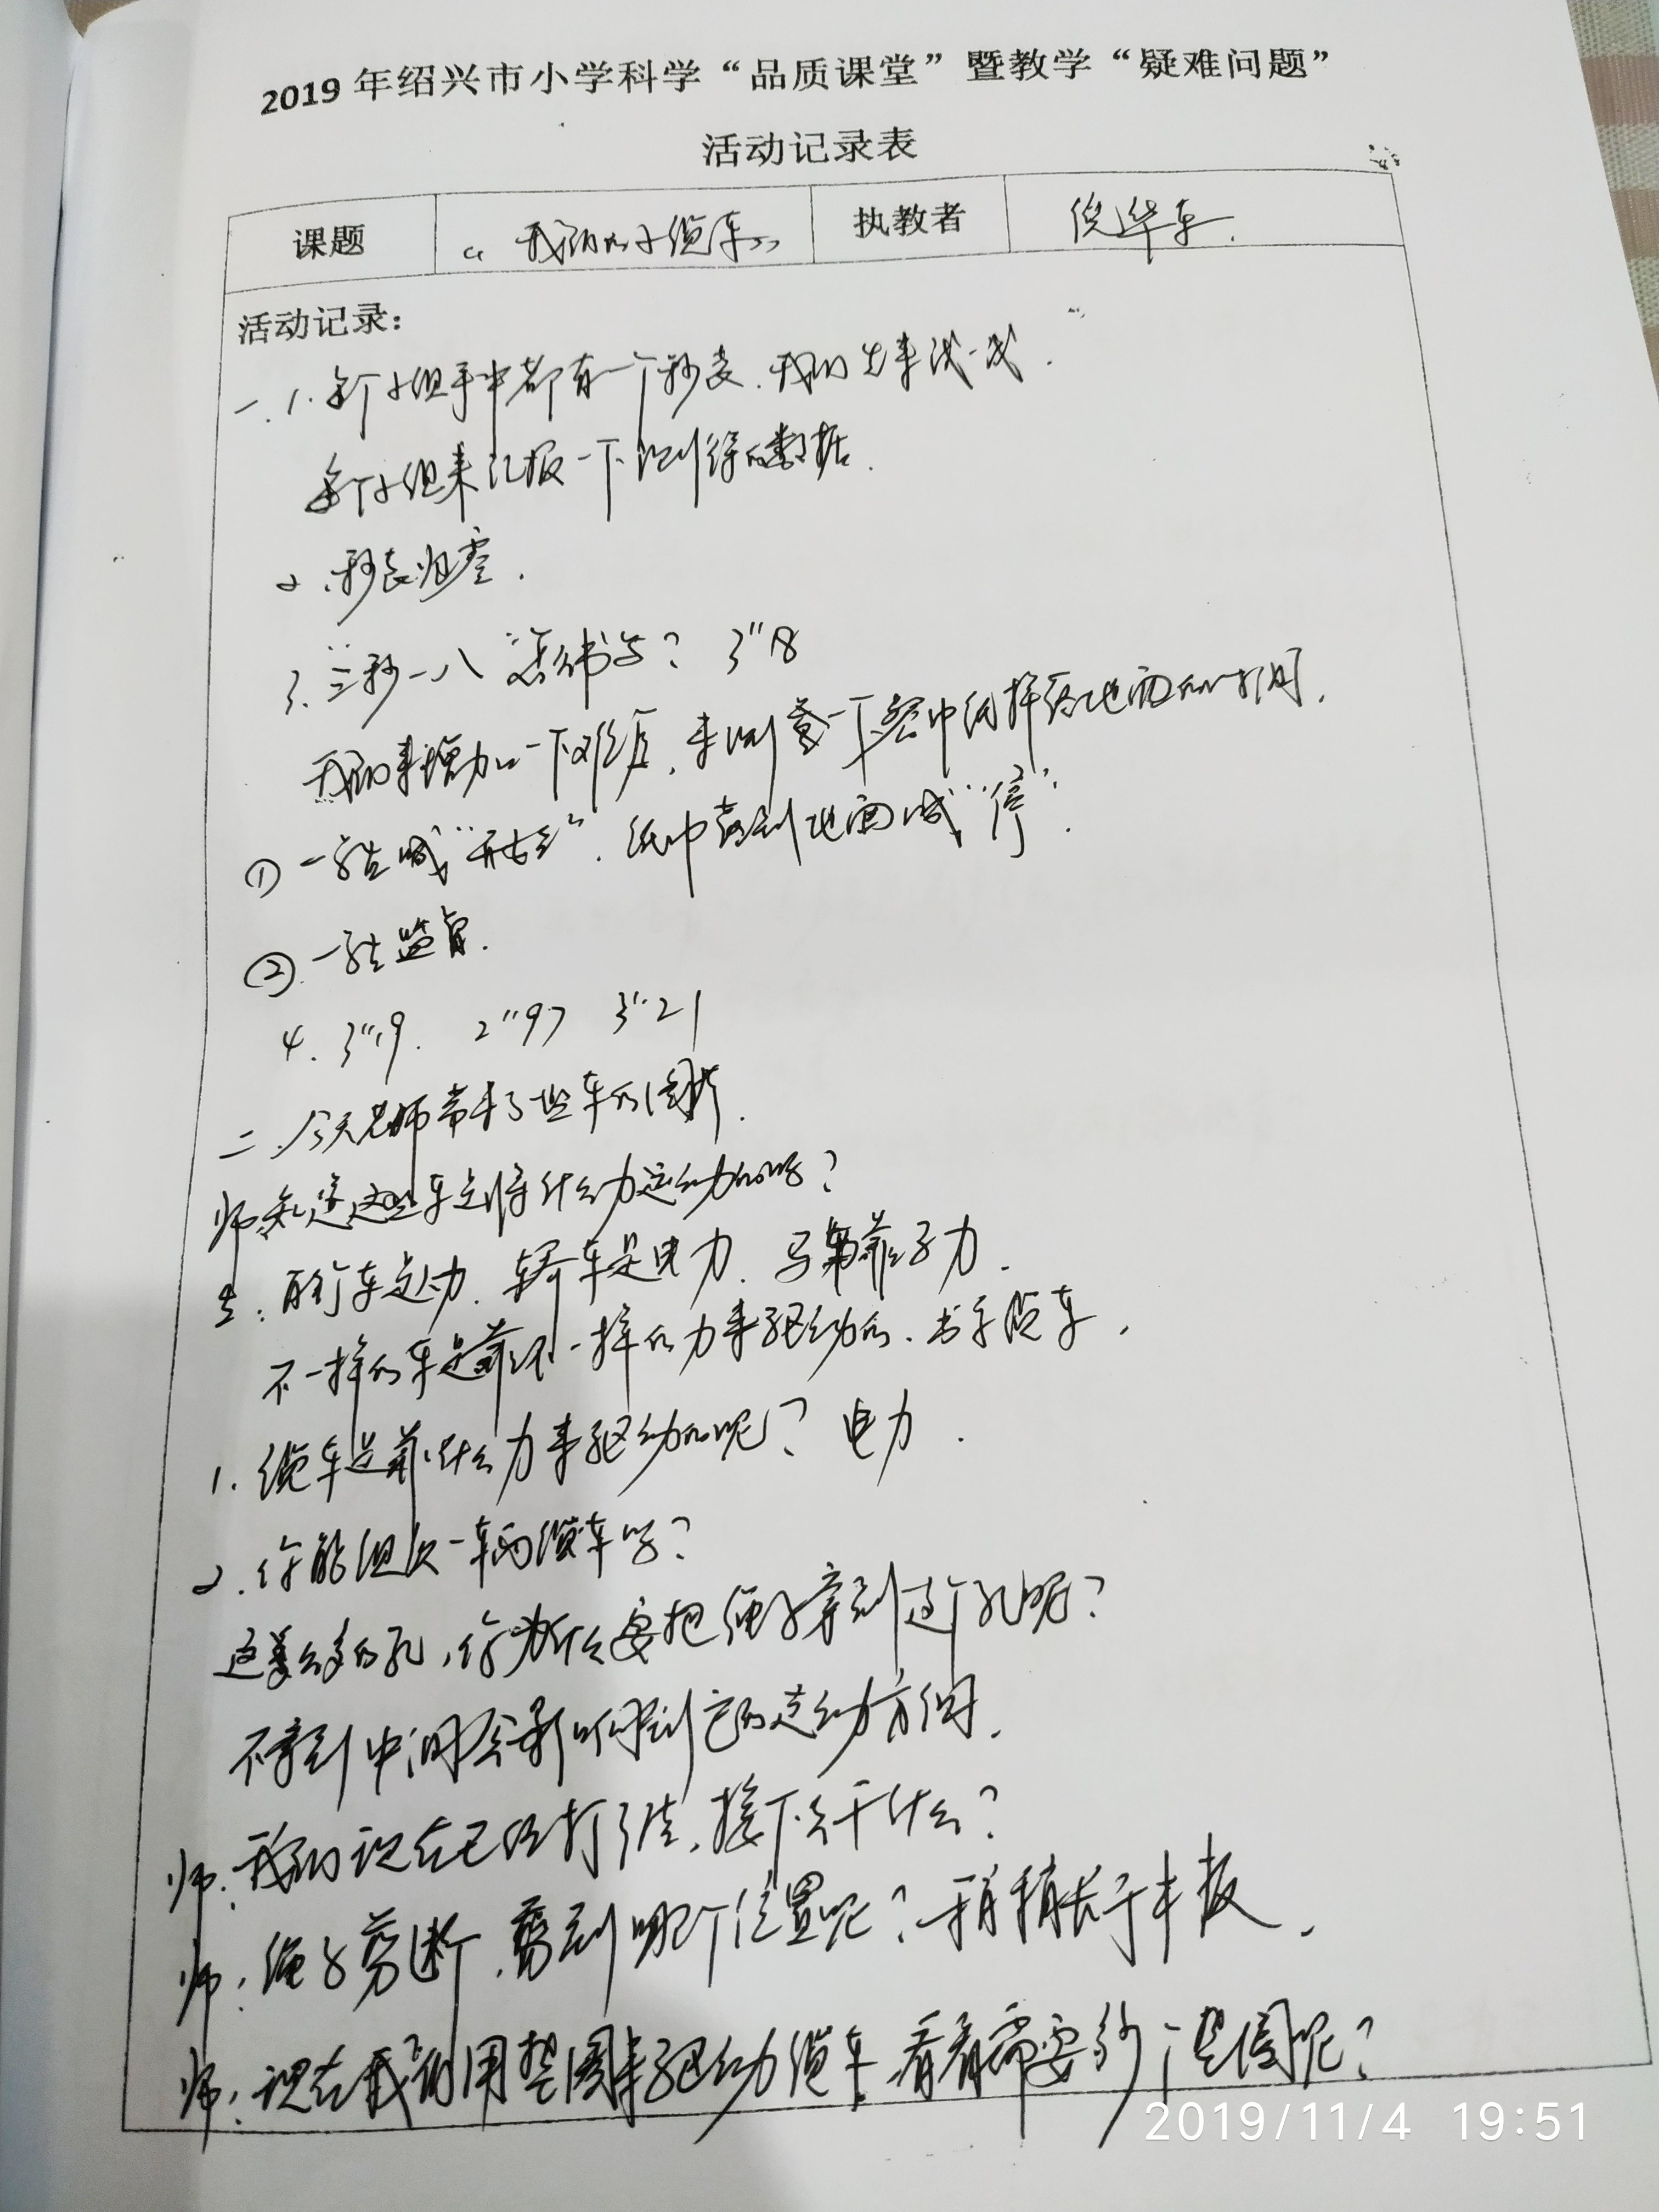 2019年绍兴市小学科学“品质课堂”暨教学“疑难问题”
活动记录表
课题 《我们的小缆车》 执教者 倪华车
活动记录：
一.1.每个小组手中都有一个秒表.我们先来试一试.
每个小组来汇报一下测得的数据.
2.秒表归零.
3.“三秒一八”怎么书写？3"18
我们来增加一下难度,来测量一下空中纸掉落地面的时间.
①一学生喊“开始”.纸巾落到地面喊“停”.
②一学生监督.
4. 3"19. 2"97 3"21
二.今天老师带来了一些车的图片.
师:知道这些车是靠什么力运动的吗？
生:自行车是人力.轿车是电力.马车靠马力.
不一样的车是靠不一样的力来驱动的.出示缆车.
1.缆车是靠什么力来驱动的呢？电力.
2.你能组装一辆缆车吗？
这么多的孔,你为什么要把绳子穿到这个孔呢？
不穿到中间会影响到它的运动方向.
师:我们现在已经打了结,接下去干什么？
师:绳子剪断,剪到哪个位置呢？稍稍长于卡板.
师:现在我们用垫圈来驱动缆车.看看需要多少个垫圈呢？
2019/11/4 19:51